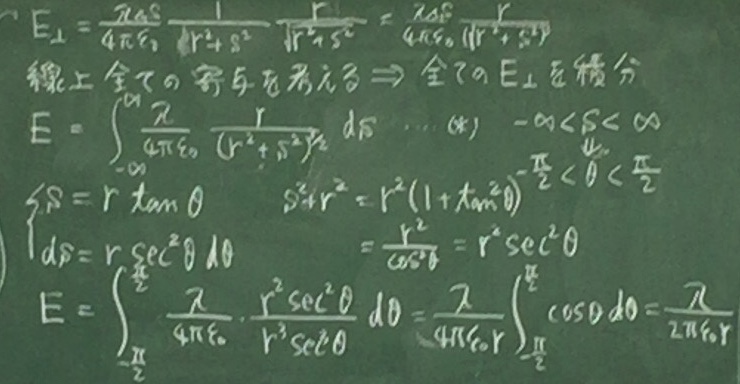 E⊥ = λΔs/4πε₀ 1/(r²+s²) r/√(r²+s²) = λΔs/4πε₀ r/(r²+s²)
線上全ての寄与を考える ⇒ 全てのE⊥を積分
E = ∫_{-∞}^{∞} λ/4πε₀ r/(r²+s²)^{3/2} ds ‥‥ (*) -∞<s<∞
⇓
{s = r tanθ s²+r² = r²(1+tan²θ) -π/2<θ<π/2
ds = r sec²θ dθ = r²/cos²θ = r² sec²θ
E = ∫_{-π/2}^{π/2} λ/4πε₀ · r² sec²θ/r³ sec³θ dθ = λ/4πε₀r ∫_{-π/2}^{π/2} cosθ dθ = λ/2πε₀r